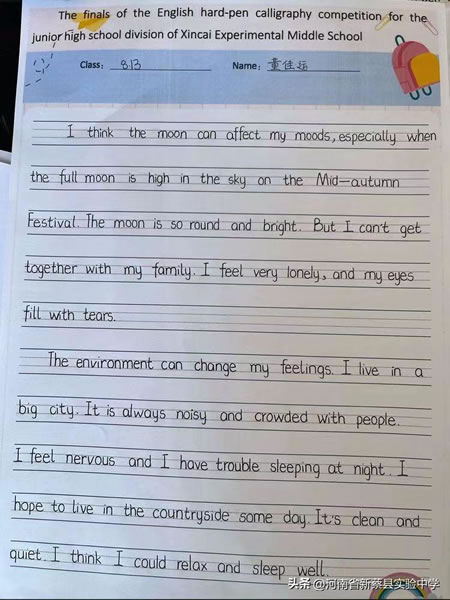 The finals of the English hard-pen calligraphy competition for the
junior high school division of Xincai Experimental Middle School
Class: 813 Name: 董佳运
I think the moon can affect my moods, especially when
the full moon is high in the sky on the Mid-autumn
Festival. The moon is so round and bright. But I can't get
together with my family. I feel very lonely, and my eyes
fill with tears.
The environment can change my feelings. I live in a
big city. It is always noisy and crowded with people.
I feel nervous and I have trouble sleeping at night. I
hope to live in the countryside some day. It's clean and
quiet. I think I could relax and sleep well.
头条 @河南省新蔡县实验中学